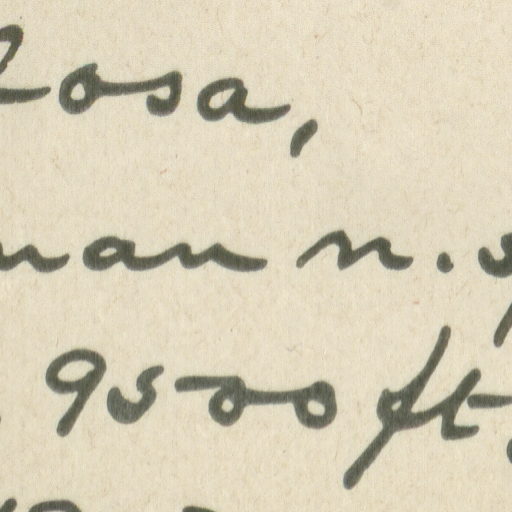 Rosa,
man n. sp
9500 ft.